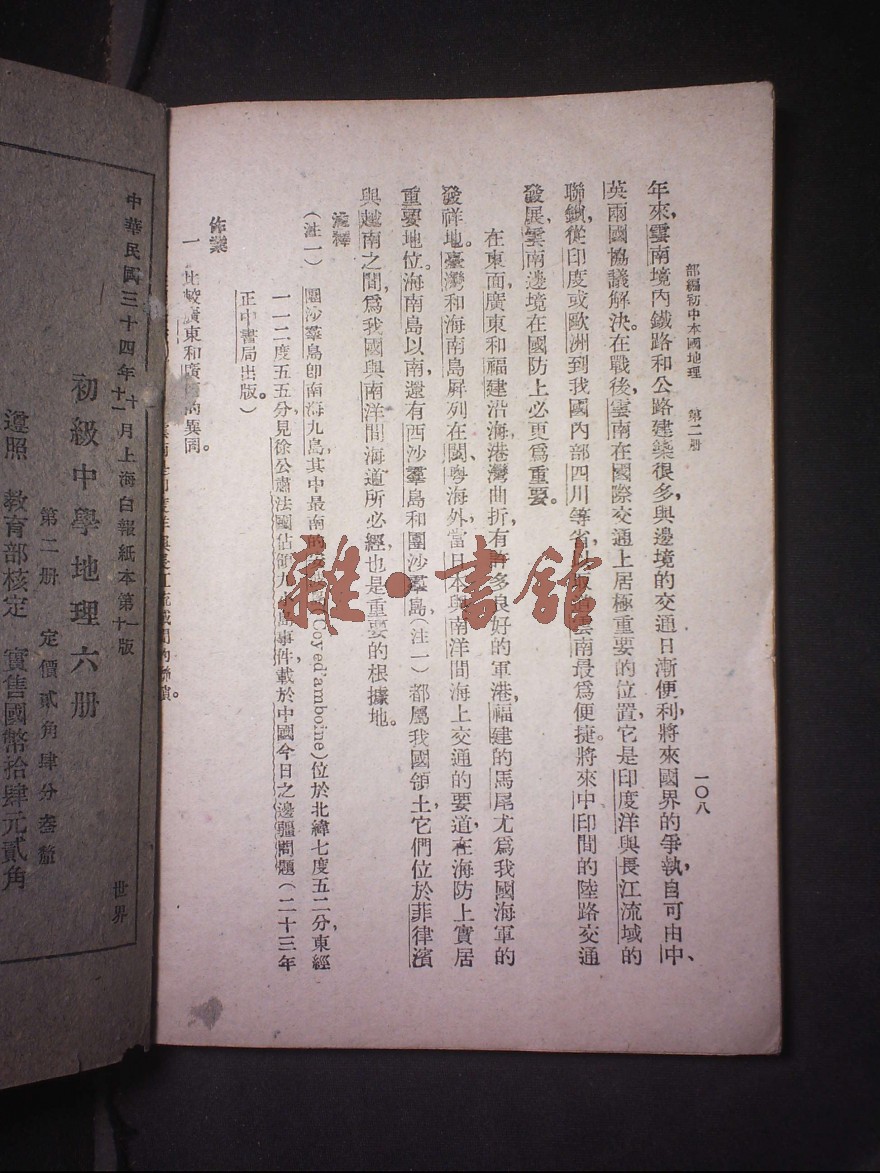 部編初中本國地理　第二册
一〇八
年來，雲南境內鐵路和公路建築很多，與邊境的交通日漸便利，將來國界的爭執，自可由中、
英兩國協議解決。在戰後，雲南在國際交通上居極重要的位置，它是印度洋與長江流域的
聯鎖，從印度或歐洲到我國內部四川等省，取道雲南最爲便捷。將來中印間的陸路交通
發展，雲南邊境在國防上必更爲重要。
在東面，廣東和福建沿海港灣曲折，有許多良好的軍港，福建的馬尾尤爲我國海軍的
發祥地。臺灣和海南島屏列在閩、粵海外，當日本與南洋間海上交通的要道，在海防上實居
重要地位。海南島以南，還有西沙羣島和團沙羣島(注一)都屬我國領土，它們位於菲律濱
與越南之間，爲我國與南洋間海道所必經，也是重要的根據地。
注釋
(注一)　團沙羣島卽南海九島，其中最南的(Coyed'amboine)位於北緯七度五二分，東經
一一二度五五分，見徐公肅法國佔領九小島事件，載於中國今日之邊疆問題(二十三年
正中書局出版。)
作業
一　比較廣東和廣西的異同。
中華民國三十四年十月上海白報紙本第一版
十一　十一
初級中學地理六册
第二册　定價貳角肆分叁釐
遵照　教育部核定　實售國幣拾肆元貳角
世界
雜·書館